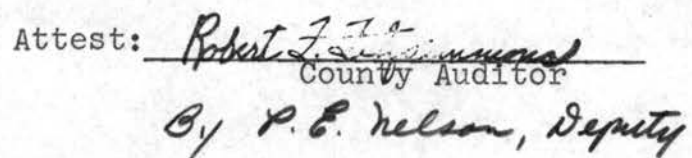 Attest: Robert F. Fitzsimmons
County Auditor
By P. E. Nelson, Deputy